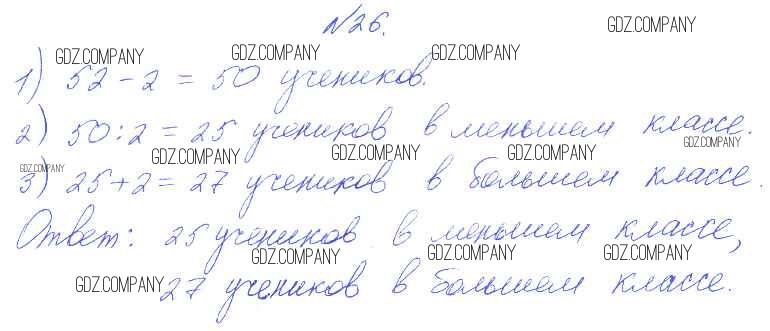 №26.
GDZ.COMPANY
GDZ.COMPANY GDZ.COMPANY GDZ.COMPANY
1) 52 - 2 = 50 учеников.
2) 50:2 = 25 учеников в меньшем классе.
GDZ.COMPANY GDZ.COMPANY GDZ.COMPANY GDZ.COMPANY
GDZ.COMPANY
3) 25+2 = 27 учеников в большем классе.
Ответ: 25 учеников в меньшем классе,
GDZ.COMPANY GDZ.COMPANY GDZ.COMPANY
GDZ.COMPANY
27 учеников в большем классе.